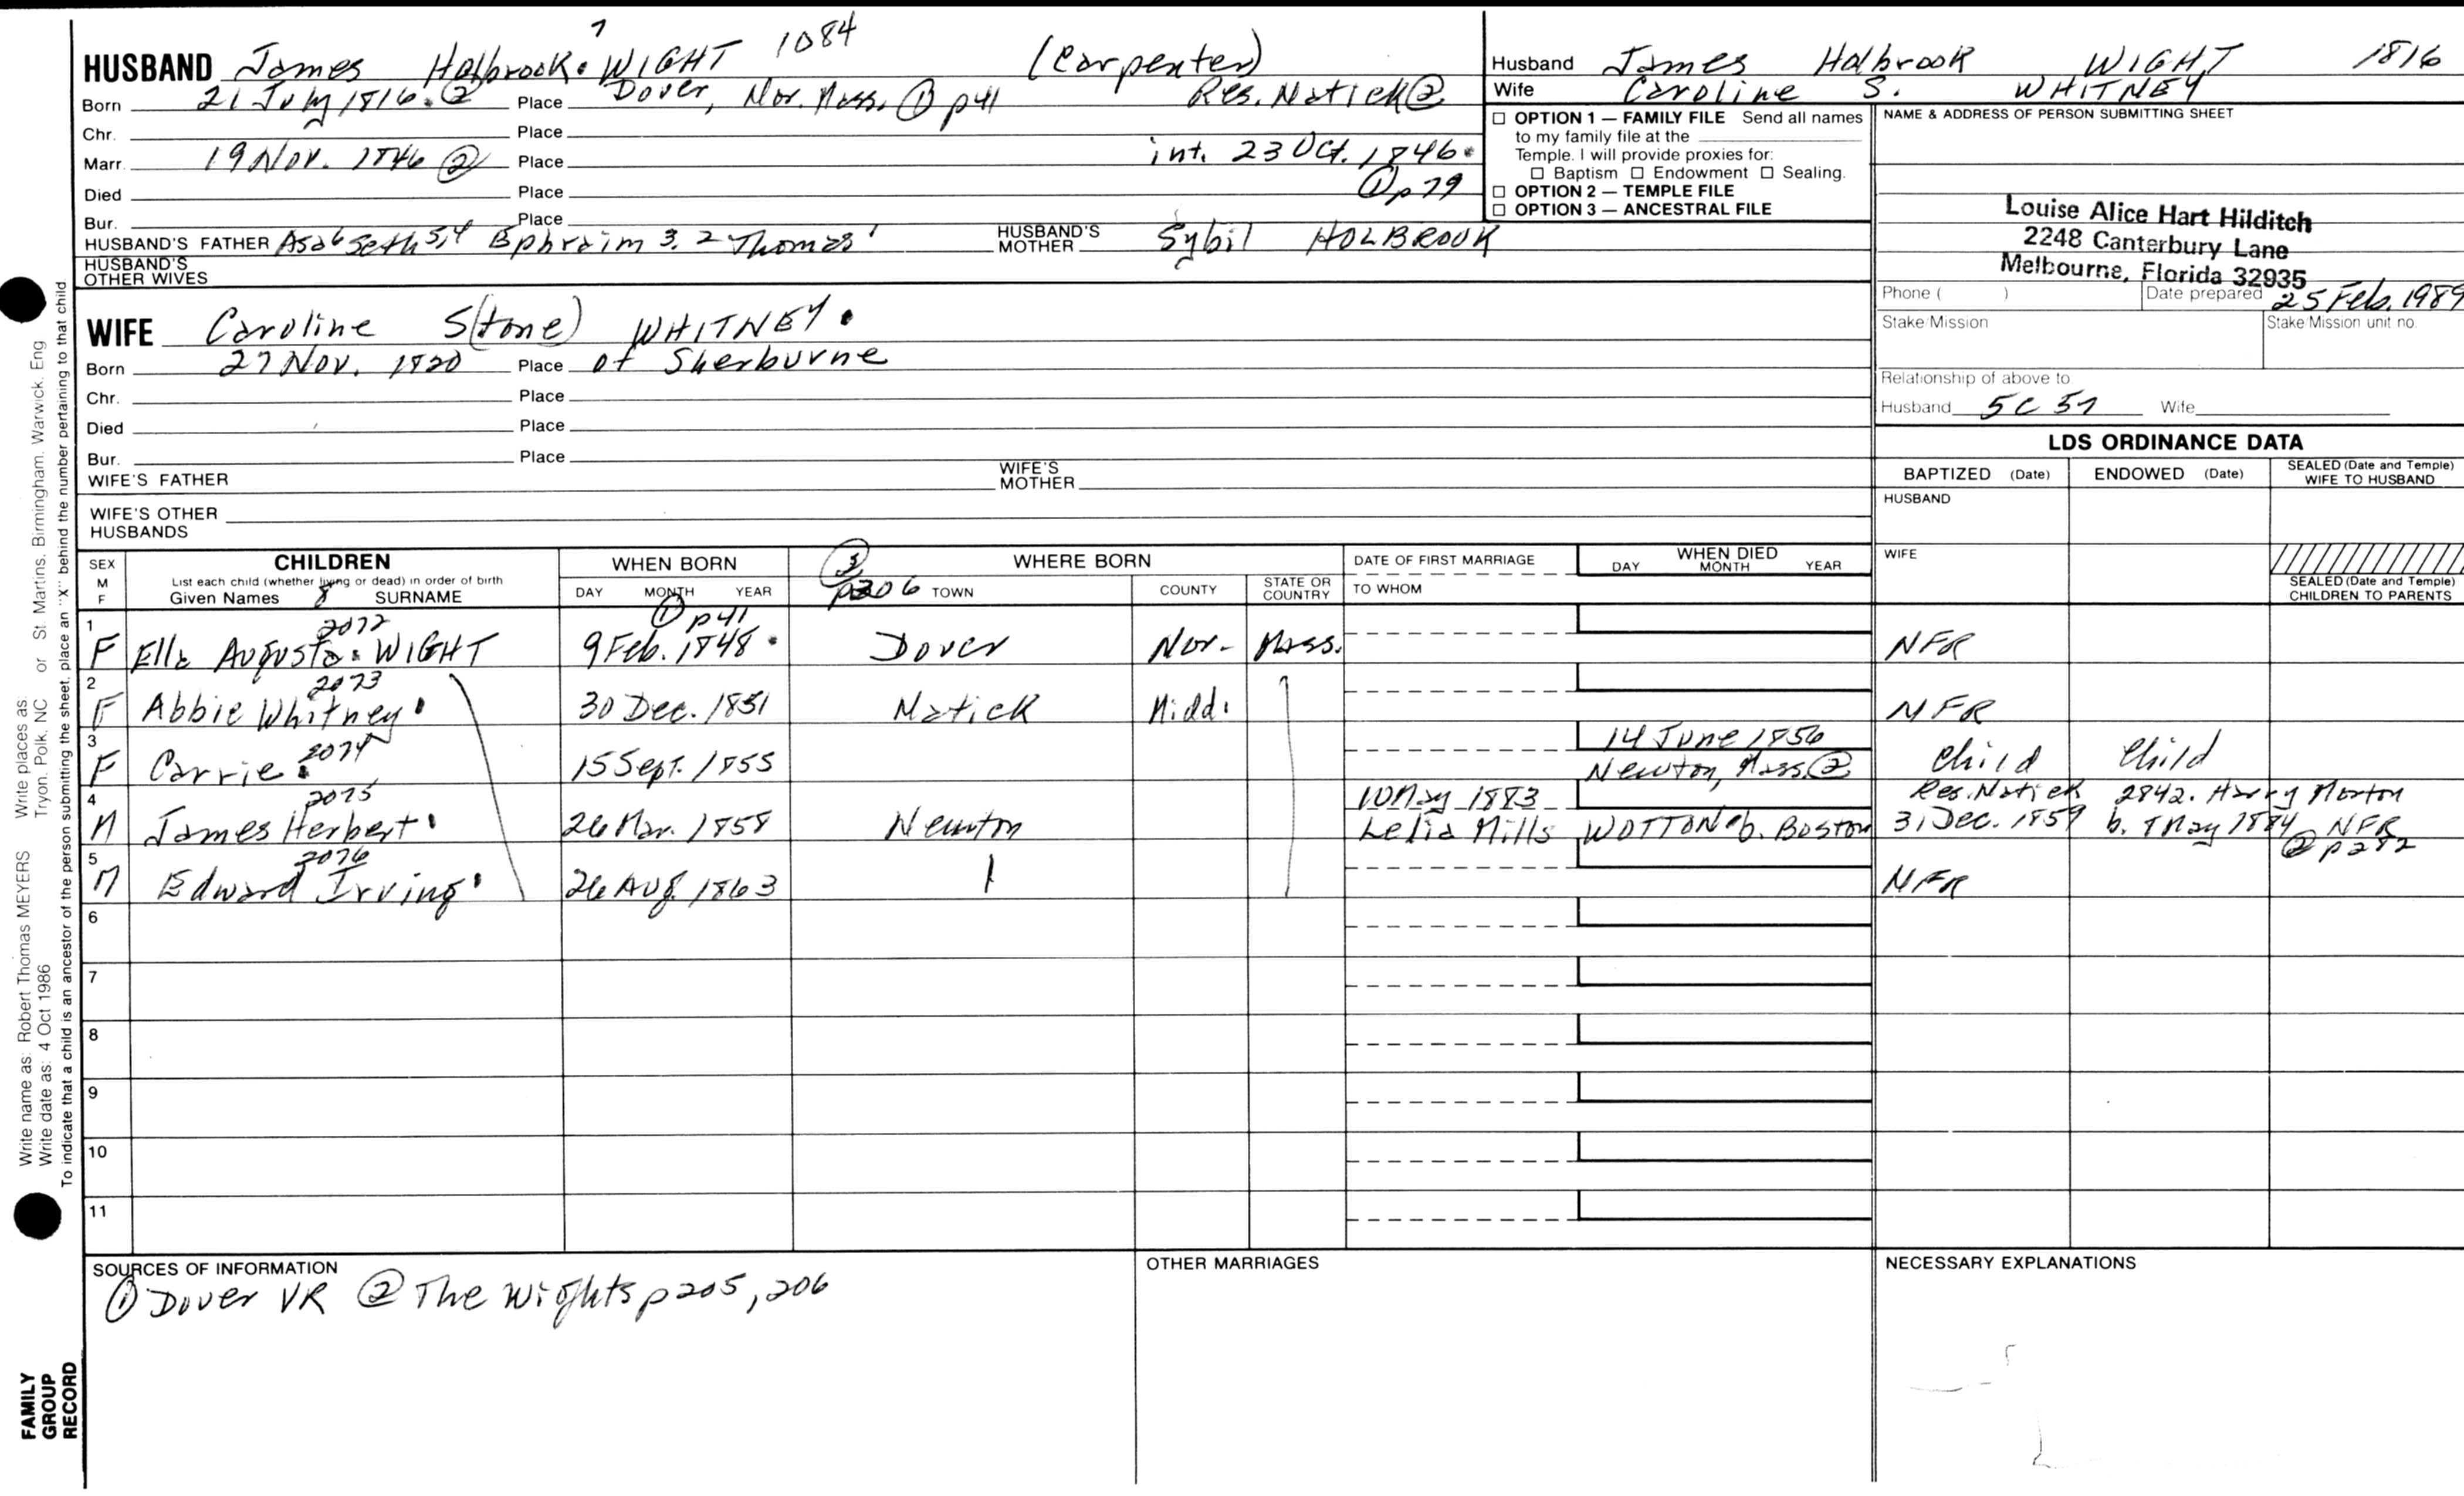 HUSBAND James Holbrook 7 WIGHT 1084 (Carpenter)
Born 21 July 1816. ② Place Dover, Nor. Mass. ① p41 Res. Natick ②
Chr. Place
Marr. 19 Nov. 1846 ② Place int. 23 Oct. 1846. ① p79
Died Place
Bur. Place
HUSBAND'S FATHER Asa6 Seth 5,4 Ephraim 3. 2 Thomas 1 HUSBAND'S MOTHER Sybil HOLBROOK
HUSBAND'S OTHER WIVES
Husband James Holbrook WIGHT 1816
Wife Caroline S. WHITNEY
☐ OPTION 1 — FAMILY FILE Send all names
to my family file at the
Temple. I will provide proxies for:
☐ Baptism ☐ Endowment ☐ Sealing.
☐ OPTION 2 — TEMPLE FILE
☐ OPTION 3 — ANCESTRAL FILE
NAME & ADDRESS OF PERSON SUBMITTING SHEET
Louise Alice Hart Hilditch
2248 Canterbury Lane
Melbourne, Florida 32935
Phone ( ) Date prepared 25 Feb. 1989
Stake/Mission Stake/Mission unit no.
Relationship of above to
Husband 5C 5? Wife
WIFE Caroline S(tone) WHITNEY.
Born 27 Nov. 1820 Place of Sherburne
Chr. Place
Died Place
Bur. Place
WIFE'S FATHER WIFE'S MOTHER
WIFE'S OTHER HUSBANDS
LDS ORDINANCE DATA
BAPTIZED (Date) ENDOWED (Date) SEALED (Date and Temple) WIFE TO HUSBAND
HUSBAND
WIFE
SEALED (Date and Temple) CHILDREN TO PARENTS
SEX M F
CHILDREN
List each child (whether living or dead) in order of birth
Given Names 8 SURNAME
WHEN BORN
DAY MONTH YEAR
③ p206
WHERE BORN
TOWN COUNTY STATE OR COUNTRY
DATE OF FIRST MARRIAGE
TO WHOM
WHEN DIED
DAY MONTH YEAR
1 F Ella Augusta. WIGHT 2072 9 Feb. 1848. ① p41 Dover Nor. Mass. NFR
2 F Abbie Whitney. 2073 30 Dec. 1851 Natick Midd. NFR
3 F Carrie. 2074 15 Sept. 1855 14 June 1856 Newton, Mass. ② Child Child
4 M James Herbert. 2075 26 Mar. 1858 Newton 10 May 1883 Lelia Mills WOTTON b. Boston 31 Dec. 1859 Res. Natick 2842. Harry Morton b. 7 May 1884 NFR ② p282
5 M Edward Irving. 2076 26 Aug. 1863 NFR
6
7
8
9
10
11
SOURCES OF INFORMATION
① Dover VR ② The Wights p205, 206
OTHER MARRIAGES
NECESSARY EXPLANATIONS
Write name as: Robert Thomas MEYERS Write places as: Tryon. Polk. NC or St. Martins. Birmingham. Warwick. Eng
Write date as: 4 Oct 1986
To indicate that a child is an ancestor of the person submitting the sheet. place an "X" behind the number pertaining to that child
FAMILY
GROUP
RECORD